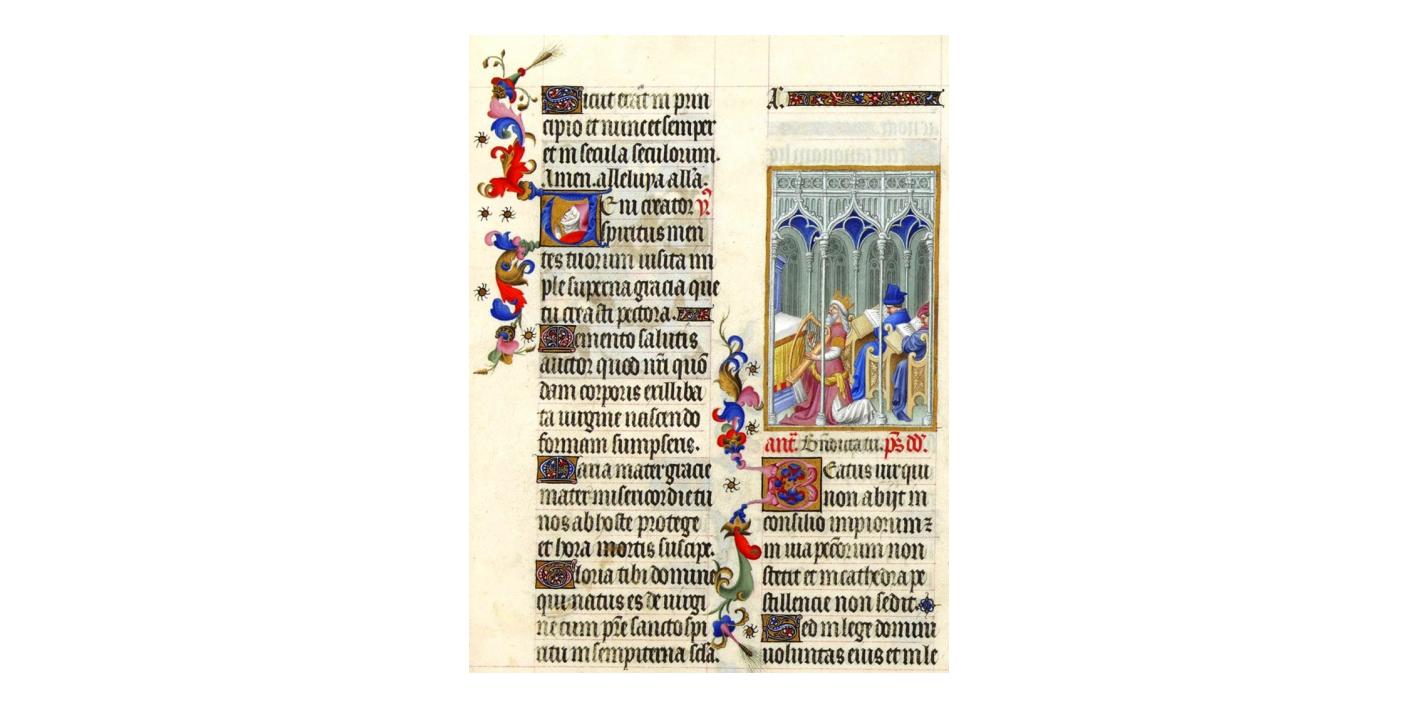 Sicut erat in prin
cipio et nunc et semper
et in secula seculorum.
Amen. alleluya all'a.
Veni creator
spiritus men
tes tuorum uisita im
ple superna gracia que
tu creasti pectora.
Memento salutis
auctor quod nr̄i quō
dam corporis ex illiba
ta uirgine nascendo
formam sumpseris.
Maria mater gracie
mater misericordie tu
nos ab hoste protege
et hora mortis suscipe.
Gloria tibi domine
qui natus es de uirgi
ne cum pr̄e sancto spi
ritu in sempiterna scl̄a.
A.
ant̄. Bn̄dicta tu. p̄s dd̄.
Beatus uir qui
non abijt in
consilio impiorum ⁊
in uia pec̄orum non
stetit et in cathedra pe
stilencie non sedit.
Sed in lege domini
uoluntas eius et in le